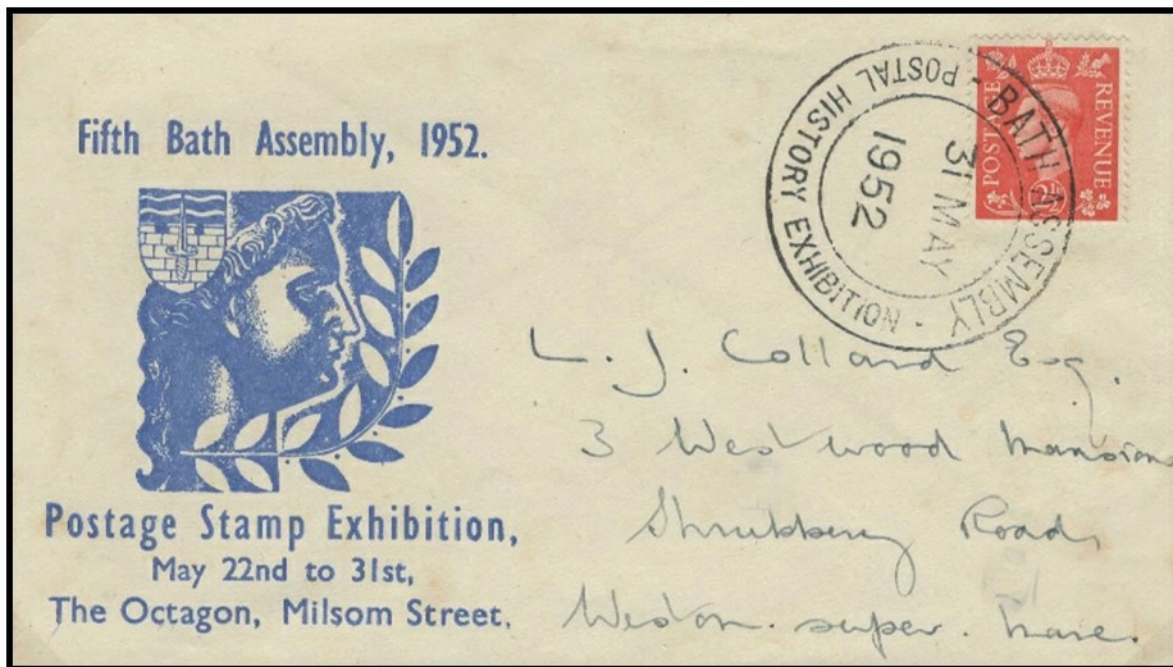 Fifth Bath Assembly, 1952.
Postage Stamp Exhibition,
May 22nd to 31st,
The Octagon, Milsom Street.
BATH ASSEMBLY - POSTAL HISTORY EXHIBITION -
31 MAY
1952
POSTAGE
REVENUE
2½
L. J. Colland Esq.
3 Westwood Mansions
Shrubbery Road,
Weston-super-Mare.